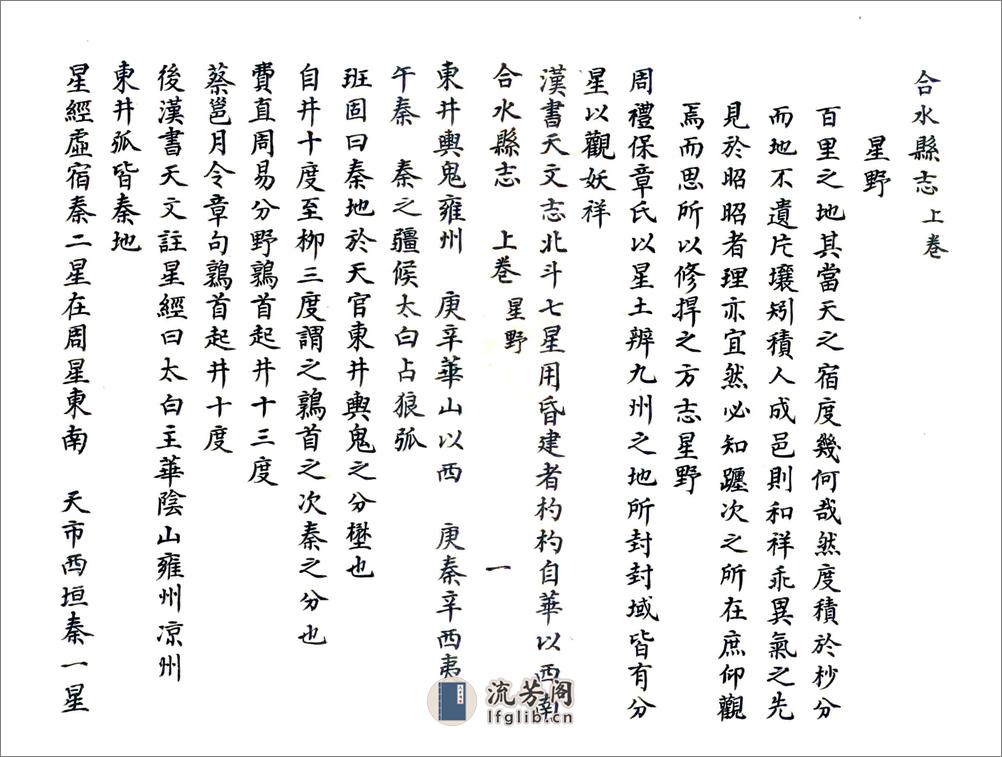 合水縣志上卷
星野
百里之地其當天之宿度幾何哉然度積於杪分
而地不遺片壤矧積人成邑則和祥乖異氣之先
見於昭昭者理亦宜然必知躔次之所在庶仰觀
焉而思所以修捍之方志星野
周禮保章氏以星土辨九州之地所封封域皆有分
星以觀妖祥
漢書天文志北斗七星用昏建者杓杓自華以西南
合水縣志 上卷 星野 一
東井輿鬼雍州 庚辛華山以西 庚秦辛西夷
午秦 秦之疆候太白占狼弧
班固曰秦地於天官東井輿鬼之分壄也
自井十度至柳三度謂之鶉首之次秦之分也
費直周易分野鶉首起井十三度
蔡邕月令章句鶉首起井十度
後漢書天文註星經曰太白主華陰山雍州凉州
東井弧皆秦地
星經虛宿秦二星在周星東南 天市西垣秦一星
流芳阁
lfglib.cn